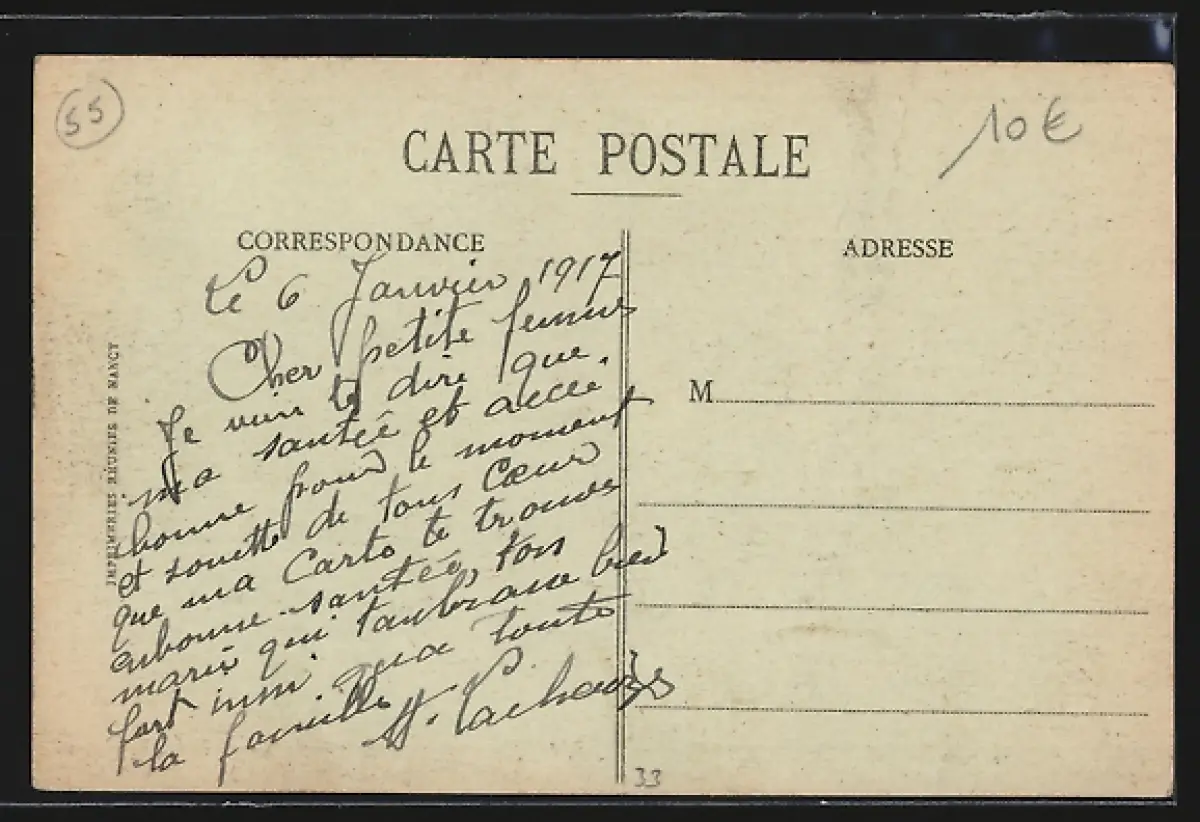 55
10 €
CARTE POSTALE
CORRESPONDANCE
ADRESSE
Le 6 Janvier 1917
Cher petite femme
Je vien te dire que
ma santée et
bonne pour le moment
et souette de tous Cœur
que ma Carte te trouve
enbonne santée, ton
marie qui tanbrasse bien
fort insi qua toute
la famille
M
IMPRIMERIES RÉUNIES DE NANCY
33